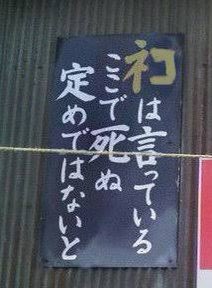 ネコは言っている
ここで死ぬ
定めではないと